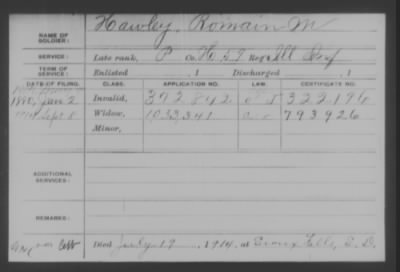 NAME OF SOLDIER: Hawley, Romain M
SERVICE: Late rank, P Co. H, 59 Reg't Ill Inf
TERM OF SERVICE: Enlisted , 1 Discharged , 1
DATE OF FILING. CLASS. APPLICATION NO. LAW. CERTIFICATE NO.
1880, Jan 2 Invalid, 392.842 322.196
Sept 8 Widow, 1033,341 793926
Minor,
ADDITIONAL SERVICES:
REMARKS:
Died July 19 1914, at Sioux Falls, S.D.